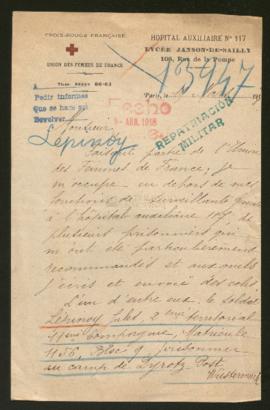 CROIX-ROUGE FRANÇAISE
HÔPITAL AUXILIAIRE N° 117
LYCÉE JANSON-DE-SAILLY
106, Rue de la Pompe
UNION DES FEMMES DE FRANCE
Paris, le
13947
Pedir informes
Que se haga
Devolver
Fecho
ABR. 1918
REPATRIACIÓN
MILITAR
Monsieur
Lepinoy
Faisant partie de l'Union
des Femmes de France, je
m'occupe, en dehors de mes
fonctions de Surveillante
à l'hôpital auxiliaire 117, de
plusieurs prisonniers qui
m'ont été particulièrement
recommandés et auxquels
j'écris et envoie des colis
L'un d'entre eux, le soldat
Lepinoy Jules, 2 territorial
11ème Compagnie, Matricule
1156, Bloc prisonnier
au camp de Dyrotz Post
Wustermark